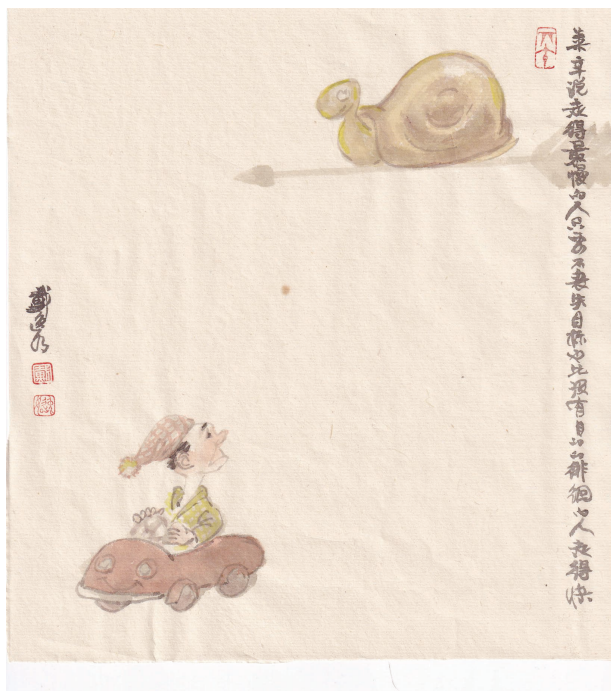 莱辛说走得最慢的人只要不丧失目标也比没有目的的徘徊的人走得快
戴逸如